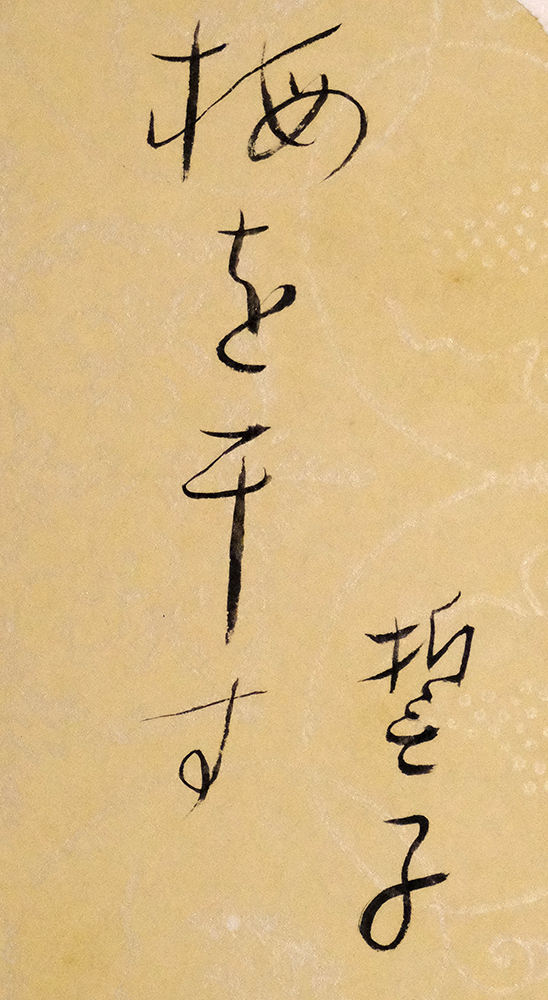 梅を干す
誓子